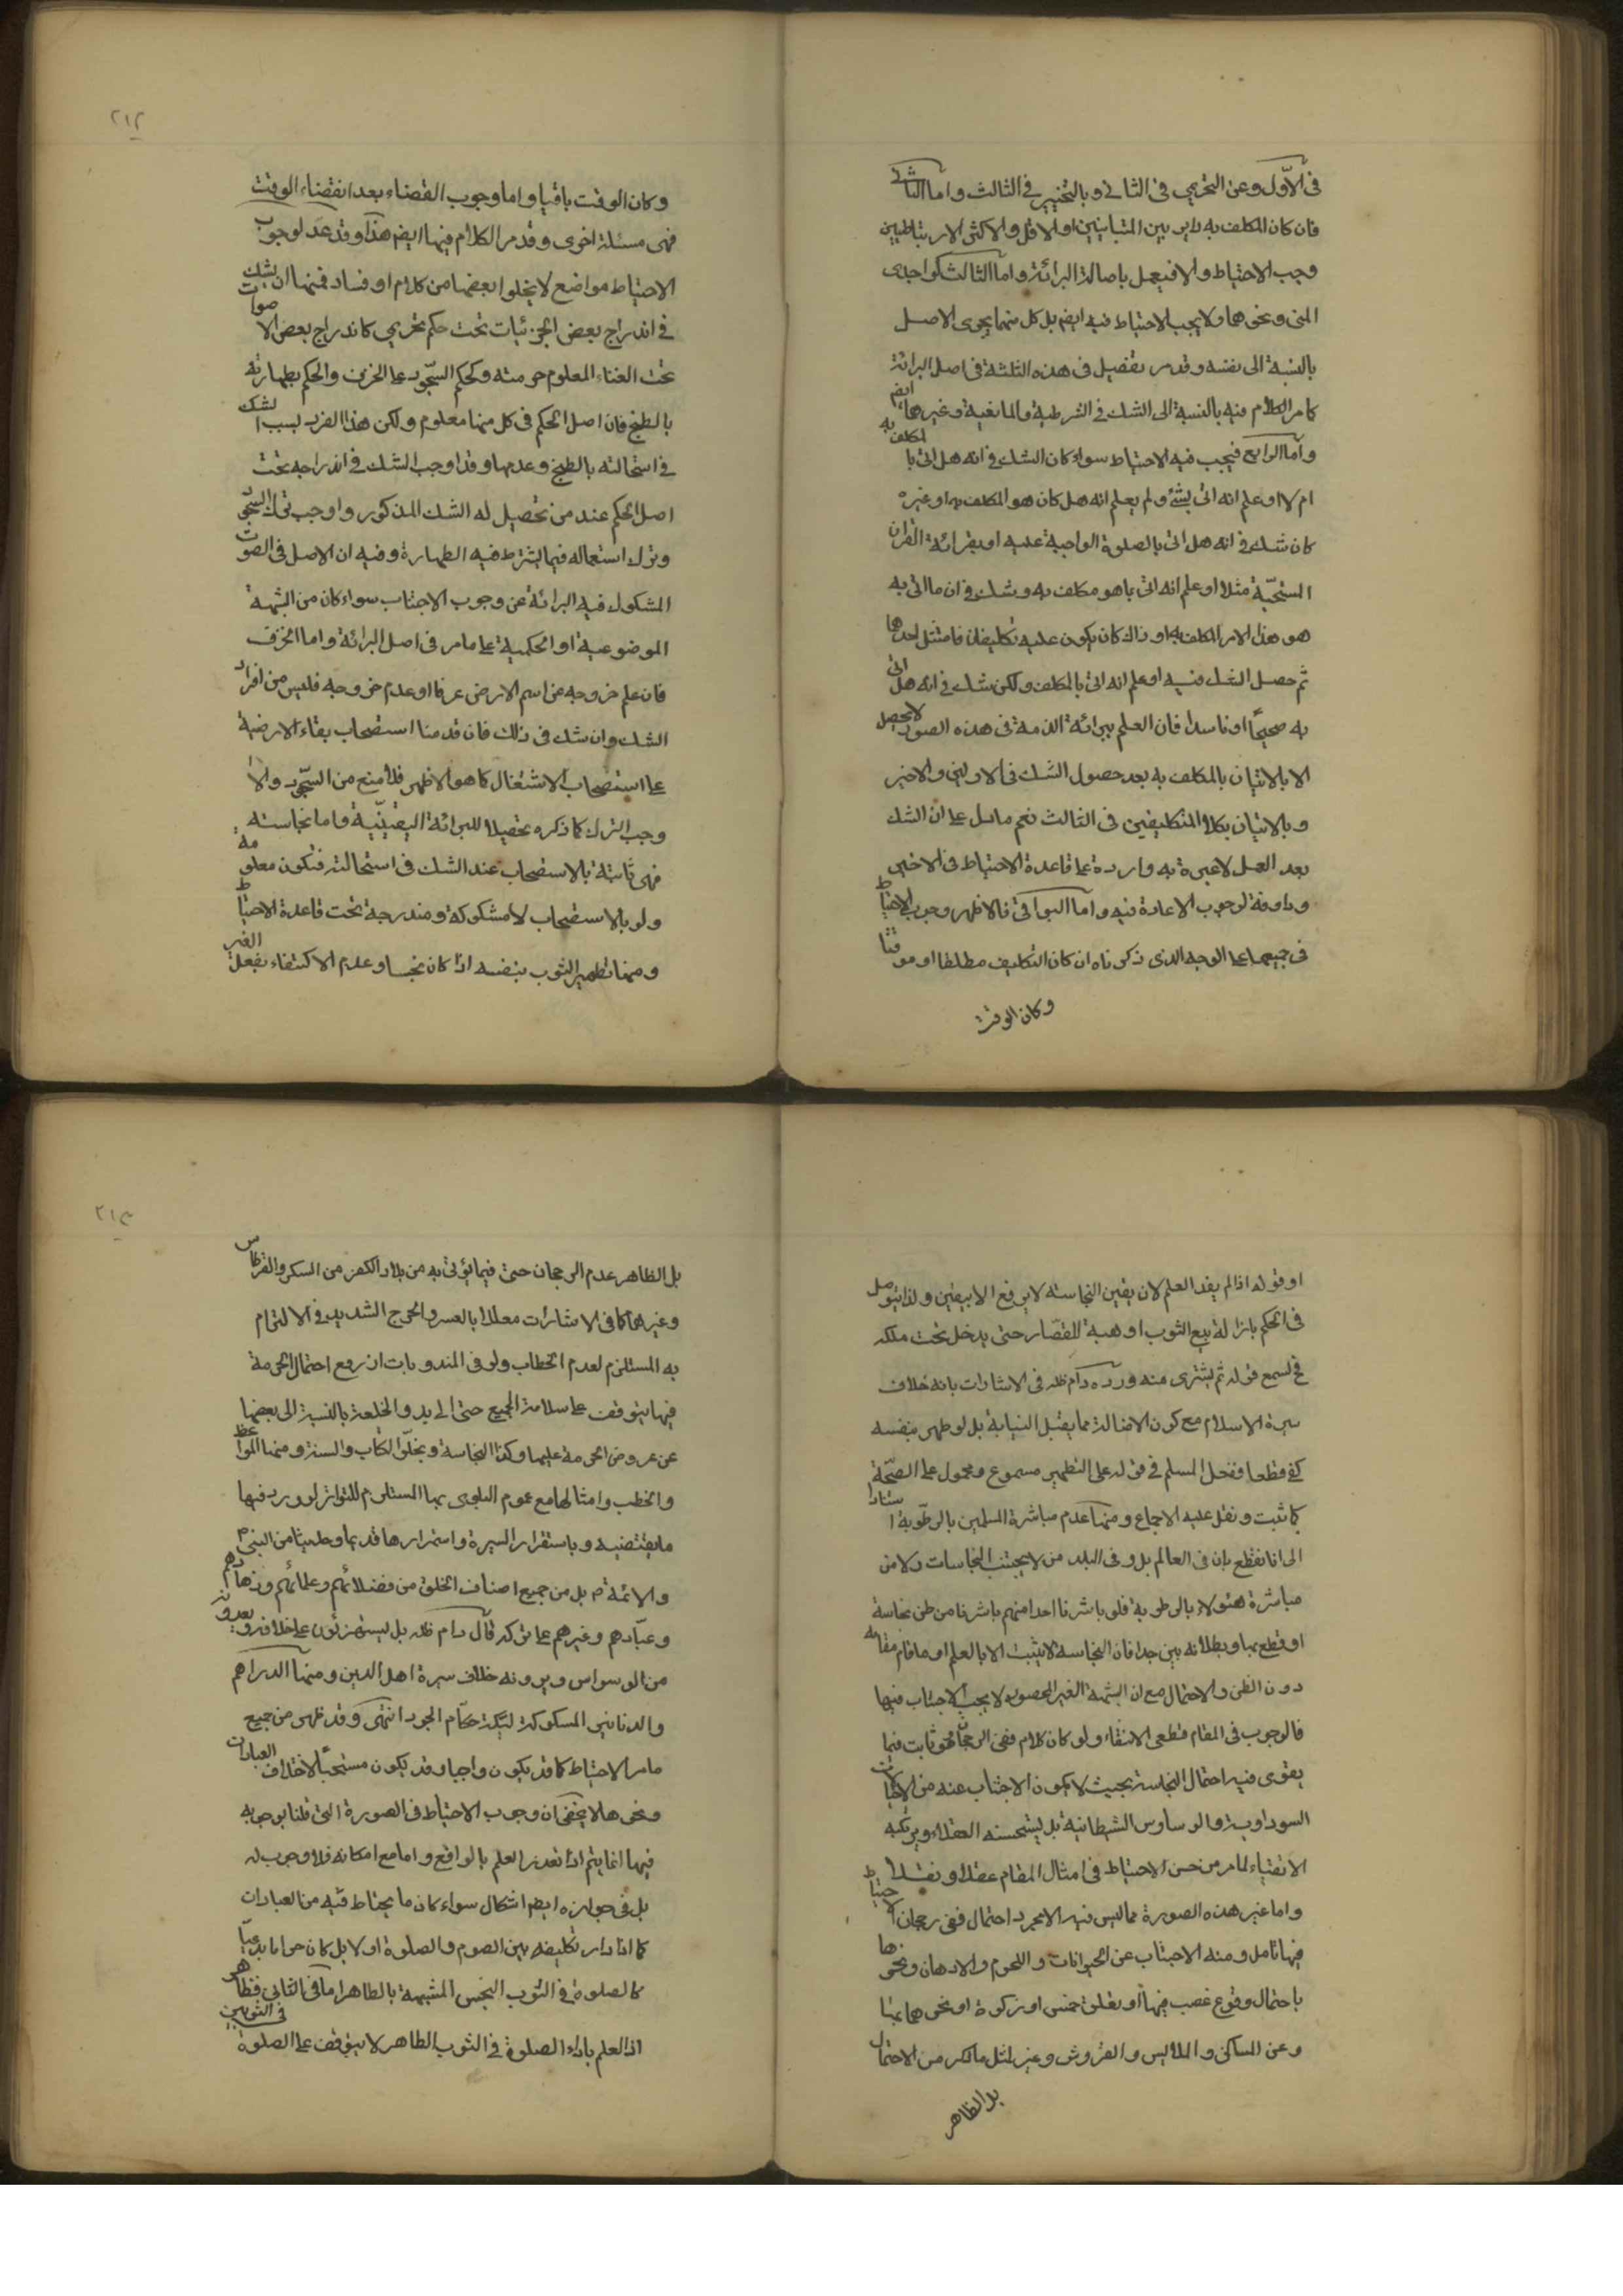 فى الاوّل وعن التحريمى فى الثانى وبالتخيير فى الثالث واما الثانى
فان كان المكلف به داير بين المتباينين او الاقل والاكثر الارتباطيين
وجب الاحتياط والا فيعمل باصالة البرائة واما الثالث كواجدى
المنى ونحوهما ولا يجب الاحتياط فيه ايضم بل كل منهما يجرى الاصل
بالنسبة الى نفسه وقد مر تفصيل فى هذه الثلثة فى اصل البرائة
كما مر الكلام فيه بالنسبة الى الشك فى الشرطية والمانعية وغيرهما ايضم
واما الرابع فيجب فيه الاحتياط سواء كان الشك فى انه هل اتى بالمكلف به
ام لا او علم انه اتى بشئ ولم يعلم انه هل كان هو المكلف به او غيره
كان شك فى انه هل اتى بالصلوة الواجبة عليه او بقرائة القران
المستحبّة مثلا او علم انه اتى بما هو مكلف به وشك فى ان ما اتى به
هو هذا الامر المكلف به او ذاك كان يكون عليه تكليفان فامتثل احدهما
ثم حصل الشك فيه او علم انه اتى بالمكلف ولكن شك فى انه هل اتى
به صحيحًا او فاسدا فان العلم ببرائة الذمة فى هذه الصور لا يحصل
الا بالاتيان بالمكلف به بعد حصول الشك فى الاولين والاخير
وبالاتيان بكلا التكليفين فى الثالث نعم ما دل على ان الشك
بعد العمل لا عبرة به واردة على قاعدة الاحتياط فى الاخير
ودافعة لوجوب الاعادة فيه واما البواقى فالاظهر وجوب الاحتياط
فى جميعها على الوجه الذى ذكرناه ان كان التكليف مطلقا او موقتا
وكان الوقت
٢١٢
وكان الوقت باقيا واما وجوب القضاء بعد انقضاء الوقت
فهى مسئلة اخرى وقد مر الكلام فيها ايضم هذا وقد عدّ لوجوب
الاحتياط مواضع لا يخلوا بعضها من كلام او فساد فمنها ان يشك
فى اندراج بعض الجزئيات تحت حكم تحريمى كاندراج بعض الاصوات
تحت الغناء المعلوم حرمته وكحكم السّجود على الخزف والحكم بطهارته
بالطبخ فان اصل الحكم فى كل منها معلوم ولكن هذا الفرد بسبب الشك
فى استحالته بالطبخ وعدمها وقد اوجب الشك فى اندراجه تحت
اصل الحكم عند من تحصيل له الشك المذكور واوجب ترك السّجود
وترك استعماله فيما يشترط فيه الطهارة وفيه ان الاصل فى الصوت
المشكوك فيه البرائة عن وجوب الاجتناب سواء كان من الشبهة
الموضوعية او الحكمية على ما مر فى اصل البرائة واما الخزف
فان علم خروجه عن اسم الارض عرفا او عدم خروجه فليس من افراد
الشك وان شك فى ذلك فان قدمنا استصحاب بقاء الارضية
على استصحاب الاشتغال كما هو الاظهر فلا منع من السّجود والا
وجب الترك كما ذكره تحصيلا للبرائة اليقينيّة واما نجاسته
فهى ثابتة بالاستصحاب عند الشك فى استحالته فتكون معلومة
ولو بالاستصحاب لا مشكوكة ومندرجة تحت قاعدة الاحتياط
ومنها تطهير الثوب بنفسه اذا كان نجسا وعدم الاكتفاء بفعل الغير
او قوله اذا لم يفد العلم لان يقين النجاسة لا يرفع الا بيقين ولذا يتوصل
فى الحكم بازالة ببيع الثوب او هبة للقصّار حتى يدخل تحت ملكه
فح يسمع قوله ثم يشترى منه ورده دام ظله فى الاشارات بانه خلاف
سيرة الاسلام مع كون الازالة مما يقبل النيابة بل لو طهر بنفسه
كفى قطعا ففعل المسلم فى قوله على التطهير مسموع ومحمول على الصّحّة
كما ثبت ونقل عليه الاجماع ومنها عدم مباشرة المسلمين بالرطوبة استنادا
الى انا نقطع بان فى العالم بل وفى البلد من لا يجتنب النجاسات ولا من
مباشرة هئولاء بالرطوبة فلو باشرنا احدا منهم باشرنا من ظن نجاسة
او قطع بها وبطلانه بين جدا فان النجاسة لا يثبت الا بالعلم او ما قام مقامه
دون الظن والاحتمال مع ان الشبهة الغير المحصورة لا يجب الاجتناب فيها
فالوجوب فى المقام قطعى الانتفاء ولو كان كلام ففى الرجحان فهو ثابت فيما
يقوى فيه احتمال النجاسة بحيث لا يكون الاجتناب عنه من
السوداوية والوساوس الشيطانية بل يستحسنه العقلاء ويرتكبه
الاتقياء لما مر من حسن الاحتياط فى امثال المقام عقلا ونقلا
واما غير هذه الصورة مما ليس فيه الا مجرد احتمال ففى رجحان الاحتياط
فيها تامل ومنه الاجتناب عن الحيوانات واللحوم والادهان ونحوها
باحتمال وقوع غصب فيها او تعلق خمس او زكوة او نحوهما بها
وعن المساكن والملابس والفروش وغير لمثل ما ذكر من الاحتمال
بل الظاهر
٢١٣
بل الظاهر عدم الرجحان حتى فيما يؤتى به من بلاد الكفر من السكر والقرطاس
وغيرهما كما فى الاشارات معللا بالعسر والحرج الشديد فى الالتزام
به المستلزم لعدم الخطاب ولو فى المندوبات اذ رفع احتمال الحرمة
فيها يتوقف على سلامة الجميع حتى الايدى والخلعة بالنسبة الى بعضها
عن عروض الحرمة عليها وكذا النجاسة وبخلوّ الكتاب والسنة ومنها المواعظ
والخطب وامثالها مع عموم البلوى بها المستلزم للتواتر لو ورد فيها
ما يقتضيه وباستقرار السيرة واستمرارها قديما وحديثا من النبى ص
والائمة ع بل من جميع اصناف الخلق من فضلائهم وعلمائهم وزهادهم
وعبّادهم وغيرهم على تركه قال دام ظله بل يستهزئون على خلافه ويعدونه
من الوسواس ويرونه خلاف سيرة اهل الدين ومنها الدراهم
والدنانير المسكوكة بسكّة حكّام الجور انتهى وقد ظهر من جميع
ما مر الاحتياط كما قد يكون واجبا وقد يكون مستحبًا لاختلاف العبارات
ونحوها لا يخفى ان وجوب الاحتياط فى الصورة التى قلنا بوجوبه
فيها انما يتم اذا تعذر العلم بالواقع واما مع امكانه فلا وجوب له
بل فى جوازه ايضم اشكال سواء كان ما يحتاط فيه من العبادات
كما اذا دار تكليفه بين الصوم والصلوة اولا بل كان حراما بدعيّا
كالصلوة فى الثوب النجس المشتبهة بالطاهر اما فى الثانى فظاهر
اذ العلم باداء الصلوة فى الثوب الطاهر لا يتوقف على الصلوة فى الثوبين